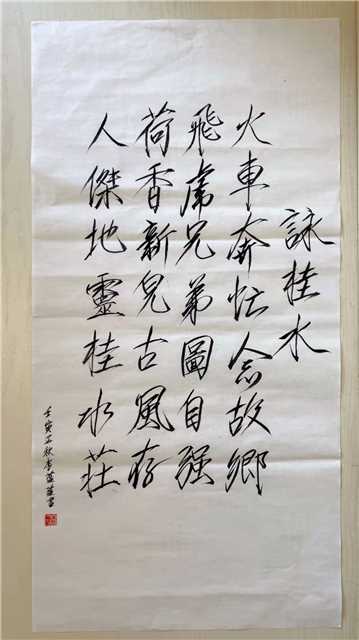 詠桂水
火車奔忙念故鄉
飛虎兄弟圖自强
荷香新皃古風存
人傑地靈桂水莊
壬寅 秋李 書